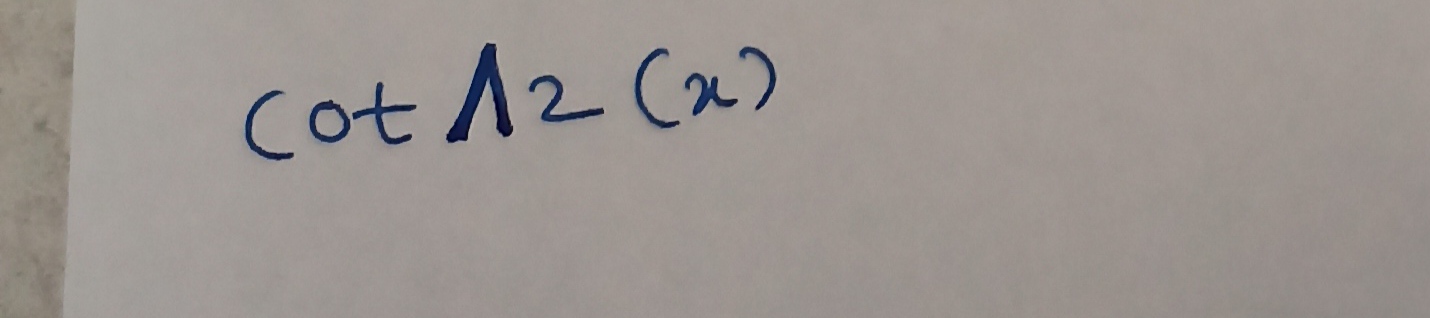 cot ^2 (x)